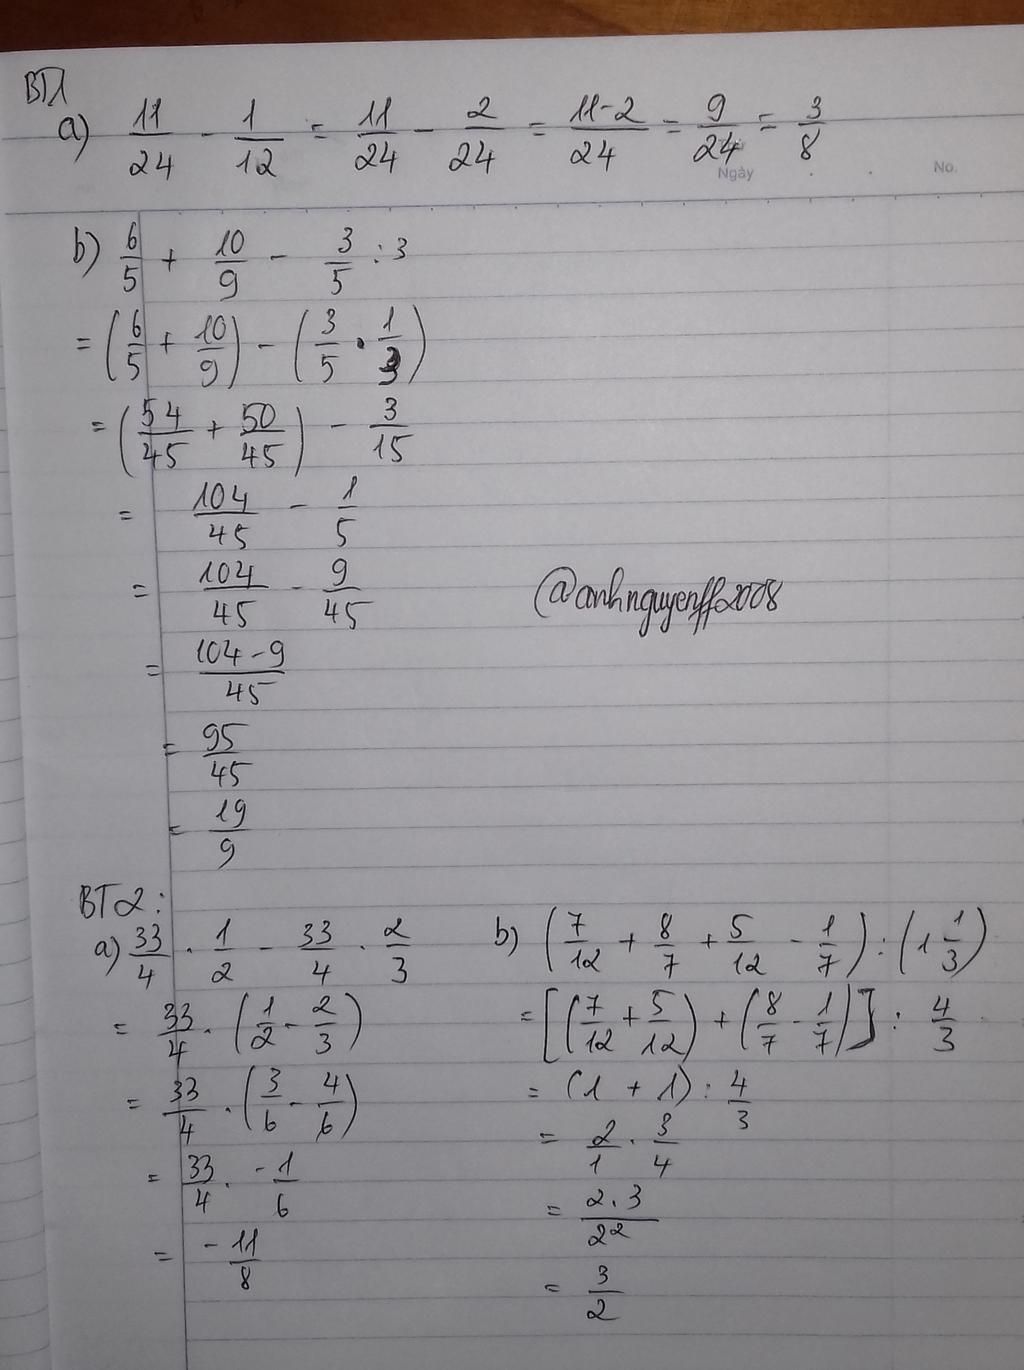 BT1
a) 11/24 - 1/12 = 11/24 - 2/24 = 11-2/24 = 9/24 = 3/8
Ngày No.
b) 6/5 + 10/9 - 3/5 : 3
= (6/5 + 10/9) - (3/5 . 1/3)
= (54/45 + 50/45) - 3/15
= 104/45 - 1/5
= 104/45 - 9/45
@anhnguyenff2008
= 104-9/45
= 95/45
= 19/9
BT2:
a) 33/4 . 1/2 - 33/4 . 2/3
= 33/4 . (1/2 - 2/3)
= 33/4 . (3/6 - 4/6)
= 33/4 . -1/6
= -11/8
b) (7/12 + 8/7 + 5/12 - 1/7) : (1 1/3)
= [(7/12 + 5/12) + (8/7 - 1/7)] : 4/3
= (1 + 1) : 4/3
= 2/1 . 3/4
= 2.3/2²
= 3/2